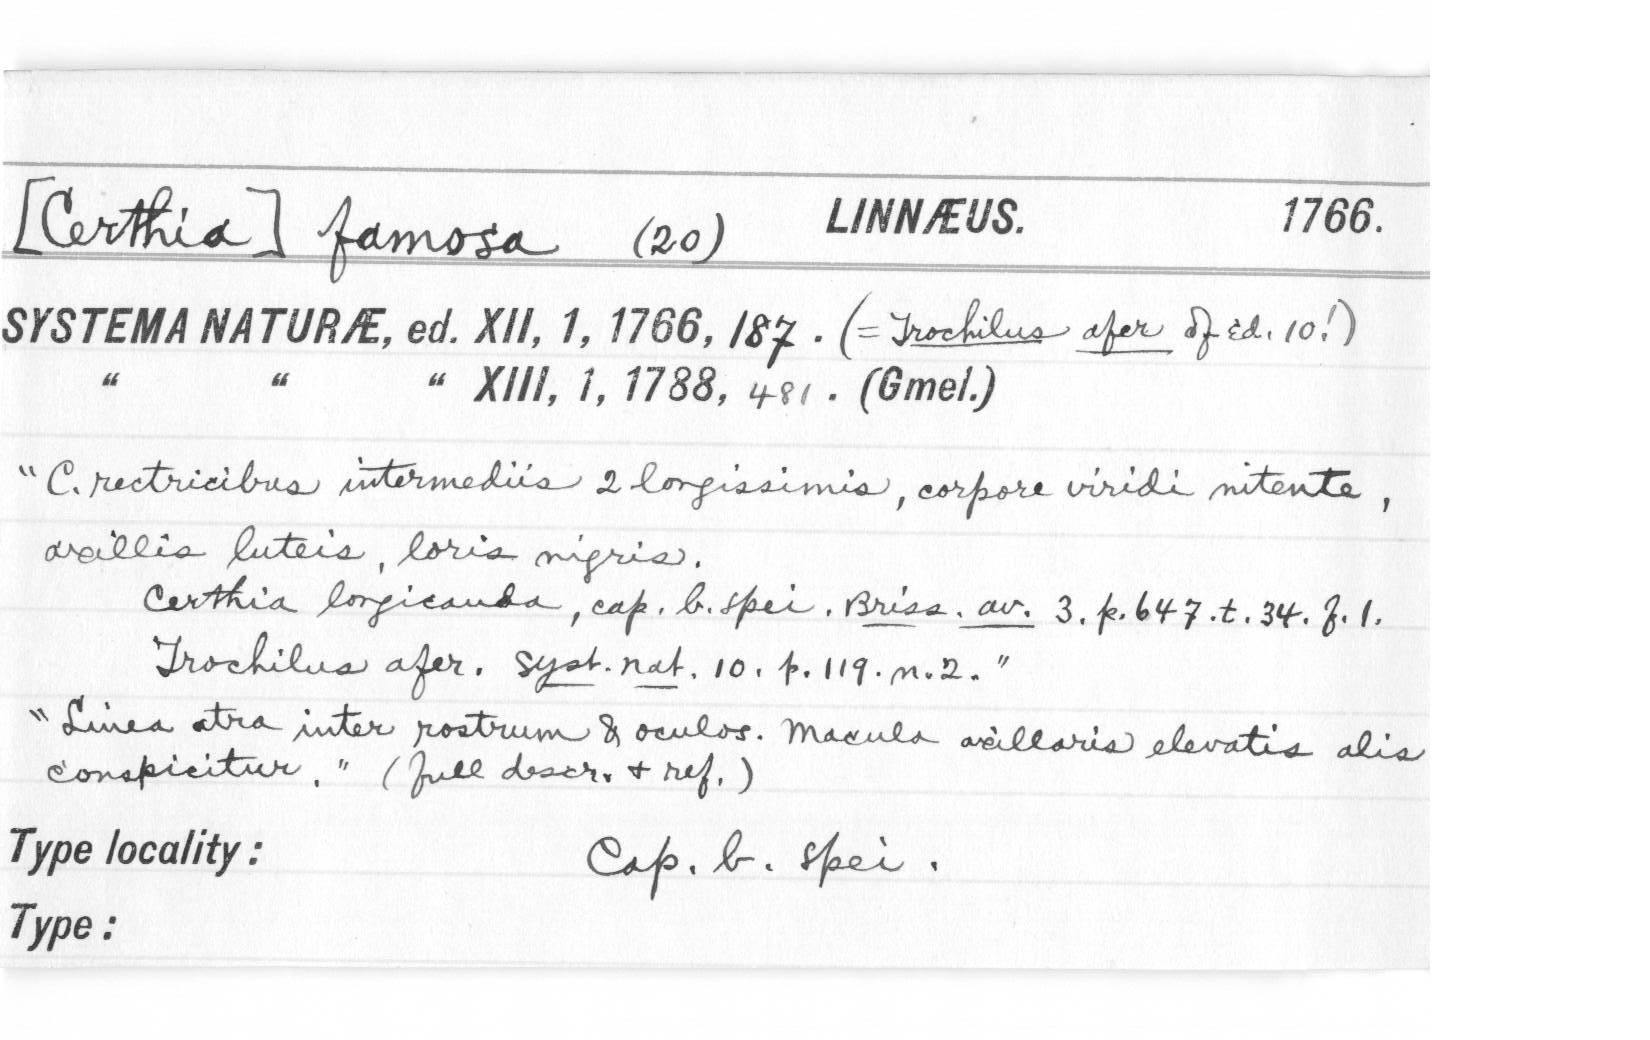 [Certhia] famosa (20) LINNÆUS. 1766.
SYSTEMA NATURÆ, ed. XII, 1, 1766, 187. (= Trochilus afer of Ed. 10!)
“ “ “ XIII, 1, 1788, 481. (Gmel.)
“C. rectricibus intermediis 2 longissimis, corpore viridi nitente,
axillis luteis, loris nigris.
Certhia longicauda, cap. b. spei. Briss. av. 3. p. 647. t. 34. f. 1.
Trochilus afer. Syst. nat. 10. p. 119. n. 2.”
“Linea atra inter rostrum & oculos. Macula axillaris elevatis alis
conspicitur.” (full descr. + ref.)
Type locality: Cap. b. spei.
Type: